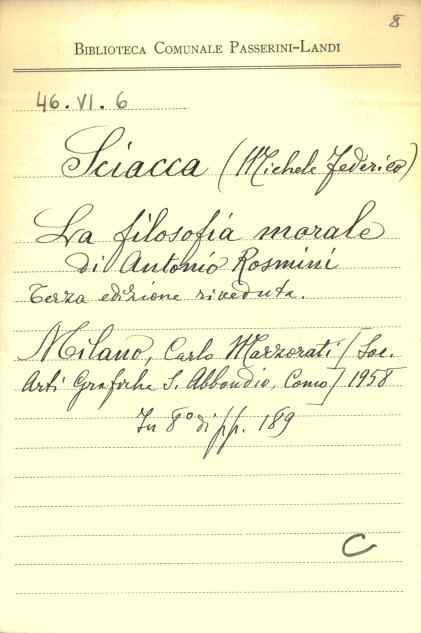 8
BIBLIOTECA COMUNALE PASSERINI-LANDI
46.VI.6
Sciacca (Michele Federico)
La filosofia morale
di Antonio Rosmini
Terza edizione riveduta.
Milano, Carlo Marzorati [Soc.
Arti Grafiche S. Abbondio, Como] 1958
In 8° di pp. 189
C